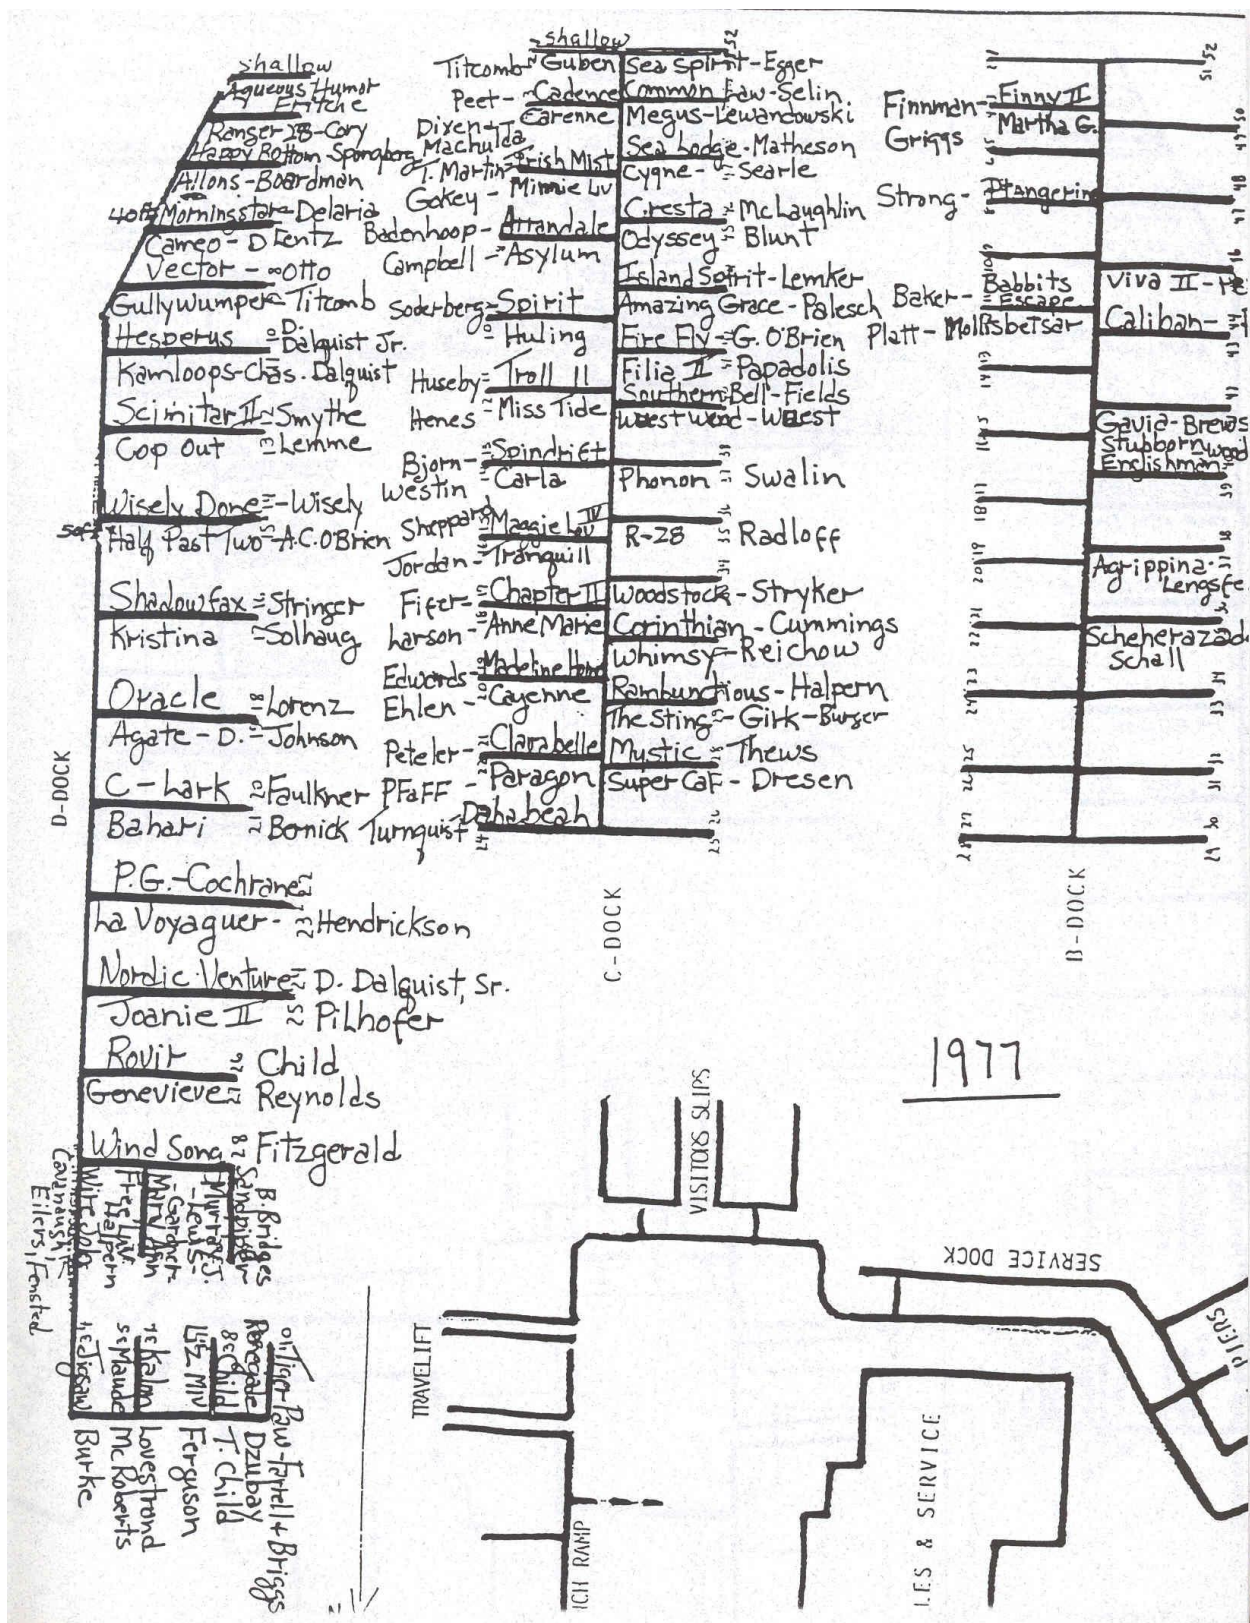 shallow
Aqueous Humor
Fritche
Ranger 28-Cory
Happy Bottom-Spongberg
Allons-Boardman
40ft Morningstar-Delaria
Cameo-D Lentz
Vector-Otto
Gullywumper-Titcomb
Hesperus D.
Dalquist Jr.
Kamloops-Chas. Dalquist
Scimitar II-Smythe
Cop Out Lemme
Wisely Done-Wisely
50ft Half Past Two-A.C. O'Brien
Shadowfax-Stringer
Kristina-Solhaug
Oracle-Lorenz
Agate-D. Johnson
C-Lark Faulkner
Bahari Bonick
P.G.-Cochrane
La Voyaguer-Hendrickson
Nordic Venture-D. Dalquist, Sr.
Joanie II Pilhofer
Rovir Child
Genevieve Reynolds
Wind Song 28 Fitzgerald
D-DOCK
B. Bridges
Sandpiper
Murray J.
-Lewis-
-Gardner-
Mary Ann
Free Luv
Halpern
Wire Job
Cavanaugh,
Eilers, Fensted
Tiger Paw-Farrell & Briggs
Renegade Dzubay
Child T. Child
Liz MIV Ferguson
Kalon Lovestrand
Maude McRoberts
Jigsaw Burke
shallow
Titcomb-Guben
Peet-Cadence
Carenne
Dixen+
Machulda
T. Martin-Irish Mist
Gokey-Minnie Luv
Badenhoop-Attandale
Campbell-Asylum
Soderberg-Spirit
Huling
Huseby-Troll II
Henes-Miss Tide
Bjorn-Spindrift
Westin-Carla
Sheppard-Maggie Lou IV
Jordan-Tranquill
Fifer-Chapter II
Larson-Anne Marie
Edwards-Madeline
Ehlen-Cayenne
Peteler-Clarabelle
Pfaff-Paragon
Turnquist Dahabeah
24
52
Sea Spirit-Egger
Common Law-Selin
Megus-Lewandowski
Sea Lodge-Matheson
Cygne-Searle
Cresta-McLaughlin
Odyssey-Blunt
Island Spirit-Lemker
Amazing Grace-Palesch
Fire Fly-G. O'Brien
Filia II Papadolis
Southern Bell-Fields
West Wend-West
Phonon Swalin
R-28 Radloff
Woodstock-Stryker
Corinthian-Cummings
Whimsy-Reichow
Rambunctious-Halpern
The Sting-Girk-Burger
Mustic-Thews
Super Cat-Dresen
25 26
C-DOCK
Finnman-Finny II
Griggs Martha G.
Strong-Ptangerin
Baker-Babbits
Escape
Platt-Mollisbetsar
Viva II-
Caliban-
Gavia-Brews
Stubborn
Englishman
Agrippina-
Lengsfe
Scheherazad
Schall
51 52
49 50
48
47
46
43
41
39
38
37
34
33
32
31
30
29
18
20 19
22 21
24 23
26 25
28 27
B-DOCK
1977
VISITORS SLIPS
SERVICE DOCK
PIERS
TRAVELIFT
ICH RAMP
LES & SERVICE